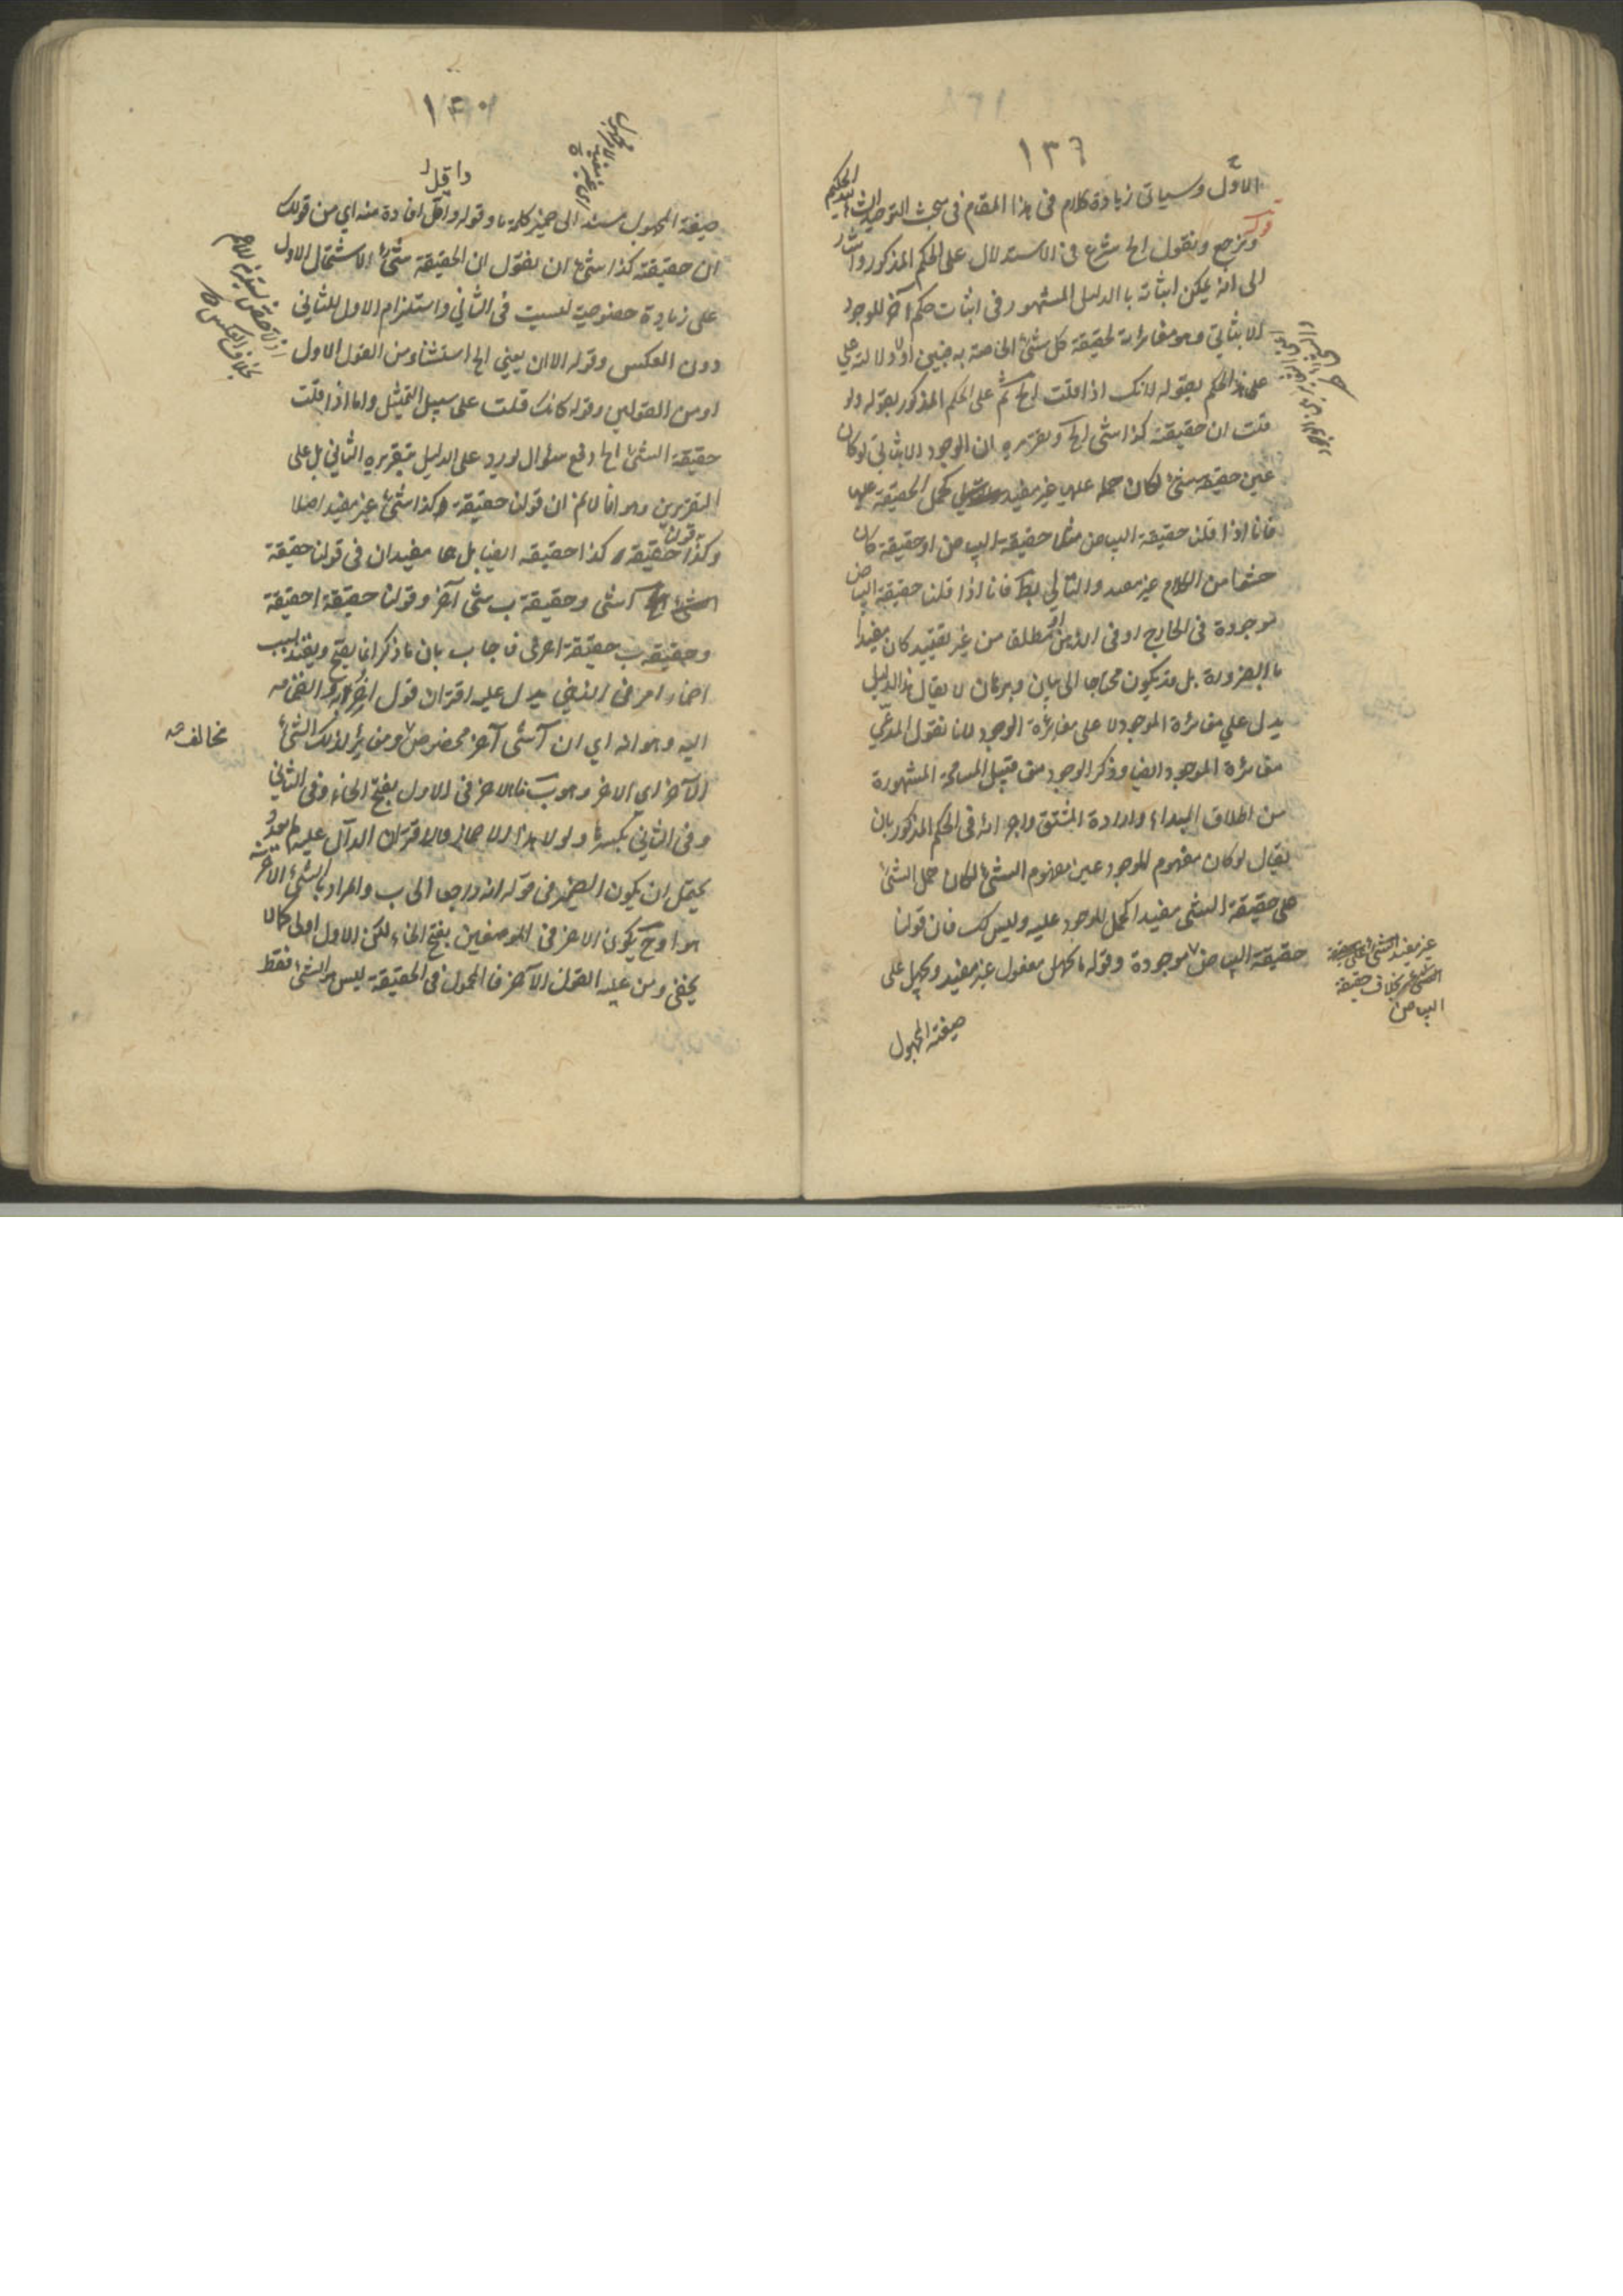 ١٣٩
الاوّل وسياتى زيادة كلام فى هذا المقام فى بحث التوحيد
قوله ونرجع ونقول الخ شرع فى الاستدلال على الحكم المذكور واشار
الى انه يمكن اثباته بالدليل المشهور فى اثبات حكم آخر للوجود
الاثباتي وهو مغائرته لحقيقة كل شئ الخاصة به فبين اولا دلالته
على هذا الحكم بقوله لانك اذا قلت الخ ثم على الحكم المذكور بقوله ولو
قلت ان حقيقة كذا شئ الخ وتقريره ان الوجود الاثباتي لو كان
عين حقيقة شئ لكان حمله عليها غير مفيد كحمل الحقيقة عليها
فانا اذا قلنا حقيقة البياض مثلا حقيقة البياض او حقيقة كان
حشوا من الكلام غير مفيد والتالي بط فانا اذا قلنا حقيقة البياض
موجودة فى الخارج او فى الذهن او مطلقا من غير تقييد كان مفيدا
بالضرورة بل قد يكون محتاجا الى بيان وبرهان لا يقال هذا الدليل
يدل على مغائرة الموجود لا على مغائرة الوجود لانا نقول المدّعي
مغائرة الموجود ايضا وذكر الوجود من قبيل المسامحة المشهورة
من اطلاق المبداء وارادة المشتق واجرائه فى الحكم المذكور بان
يقال لو كان مفهوم الموجود عين مفهوم الشئ لكان حمل الشئ
على حقيقة الشئ مفيدا كحمل الموجود عليه وليس كك فان قولنا
حقيقة البياض موجودة وقوله ما يجهل مفعول غير مفيد ويجهل على
غير مفيد
بخلاف حقيقة
البياض
صيغة المجهول
١٤٠
واقل
صيغة المجهول مسند الى ضمير كلمة ما وقوله واقل افادة منه اي من قولك
ان حقيقة كذا شئ ان يقول ان الحقيقة شئ لاشتمال الاول
على زيادة خصوصية ليست فى الثاني واستلزام الاول للثاني
دون العكس وقوله الا ان يعني الخ استثناء من القول الاول
او من القولين وقوله كانك قلت على سبيل التمثيل واما اذا قلت
حقيقة الشئ الخ دفع سؤال يورد على الدليل بتقريره الثاني بل على
التقريرين وهو انا لا نم ان قولنا حقيقة كذا شئ غير مفيد اصلا
وكذا قولنا حقيقة كذا حقيقة ايضا بل هما مفيدان فى قولنا حقيقة
آ شئ وحقيقة ب شئ آخر وقولنا حقيقة ا حقيقة
وحقيقة ب حقيقة اخرى فاجاب بان ما ذكر انما يصح ويفيد بسبب
اضمار امر فى النفس يدل عليه اقتران قول آخر
اليه وهو انه اي ان آ شئ آخر مخصوص ومغاير لذلك الشئ
الآخر اي الاخر وهو ب فالاخر فى الاول بفتح الخاء وفى الثاني
وفى الثاني بكسرها ولولا هذا الاضمار والاقتران الدال عليه لم يفد و
يحتمل ان يكون الضمير فى قوله انه راجعا الى ب والمراد بالشئ الآخر
هو ا وح يكون الاخر فى الموضعين بفتح الخاء لكن الاول اولى كما لا
يخفى ومن عليه القول الآخر فالمحمول فى الحقيقة ليس هو الشئ فقط
مخالف صه
بخلاف العكس